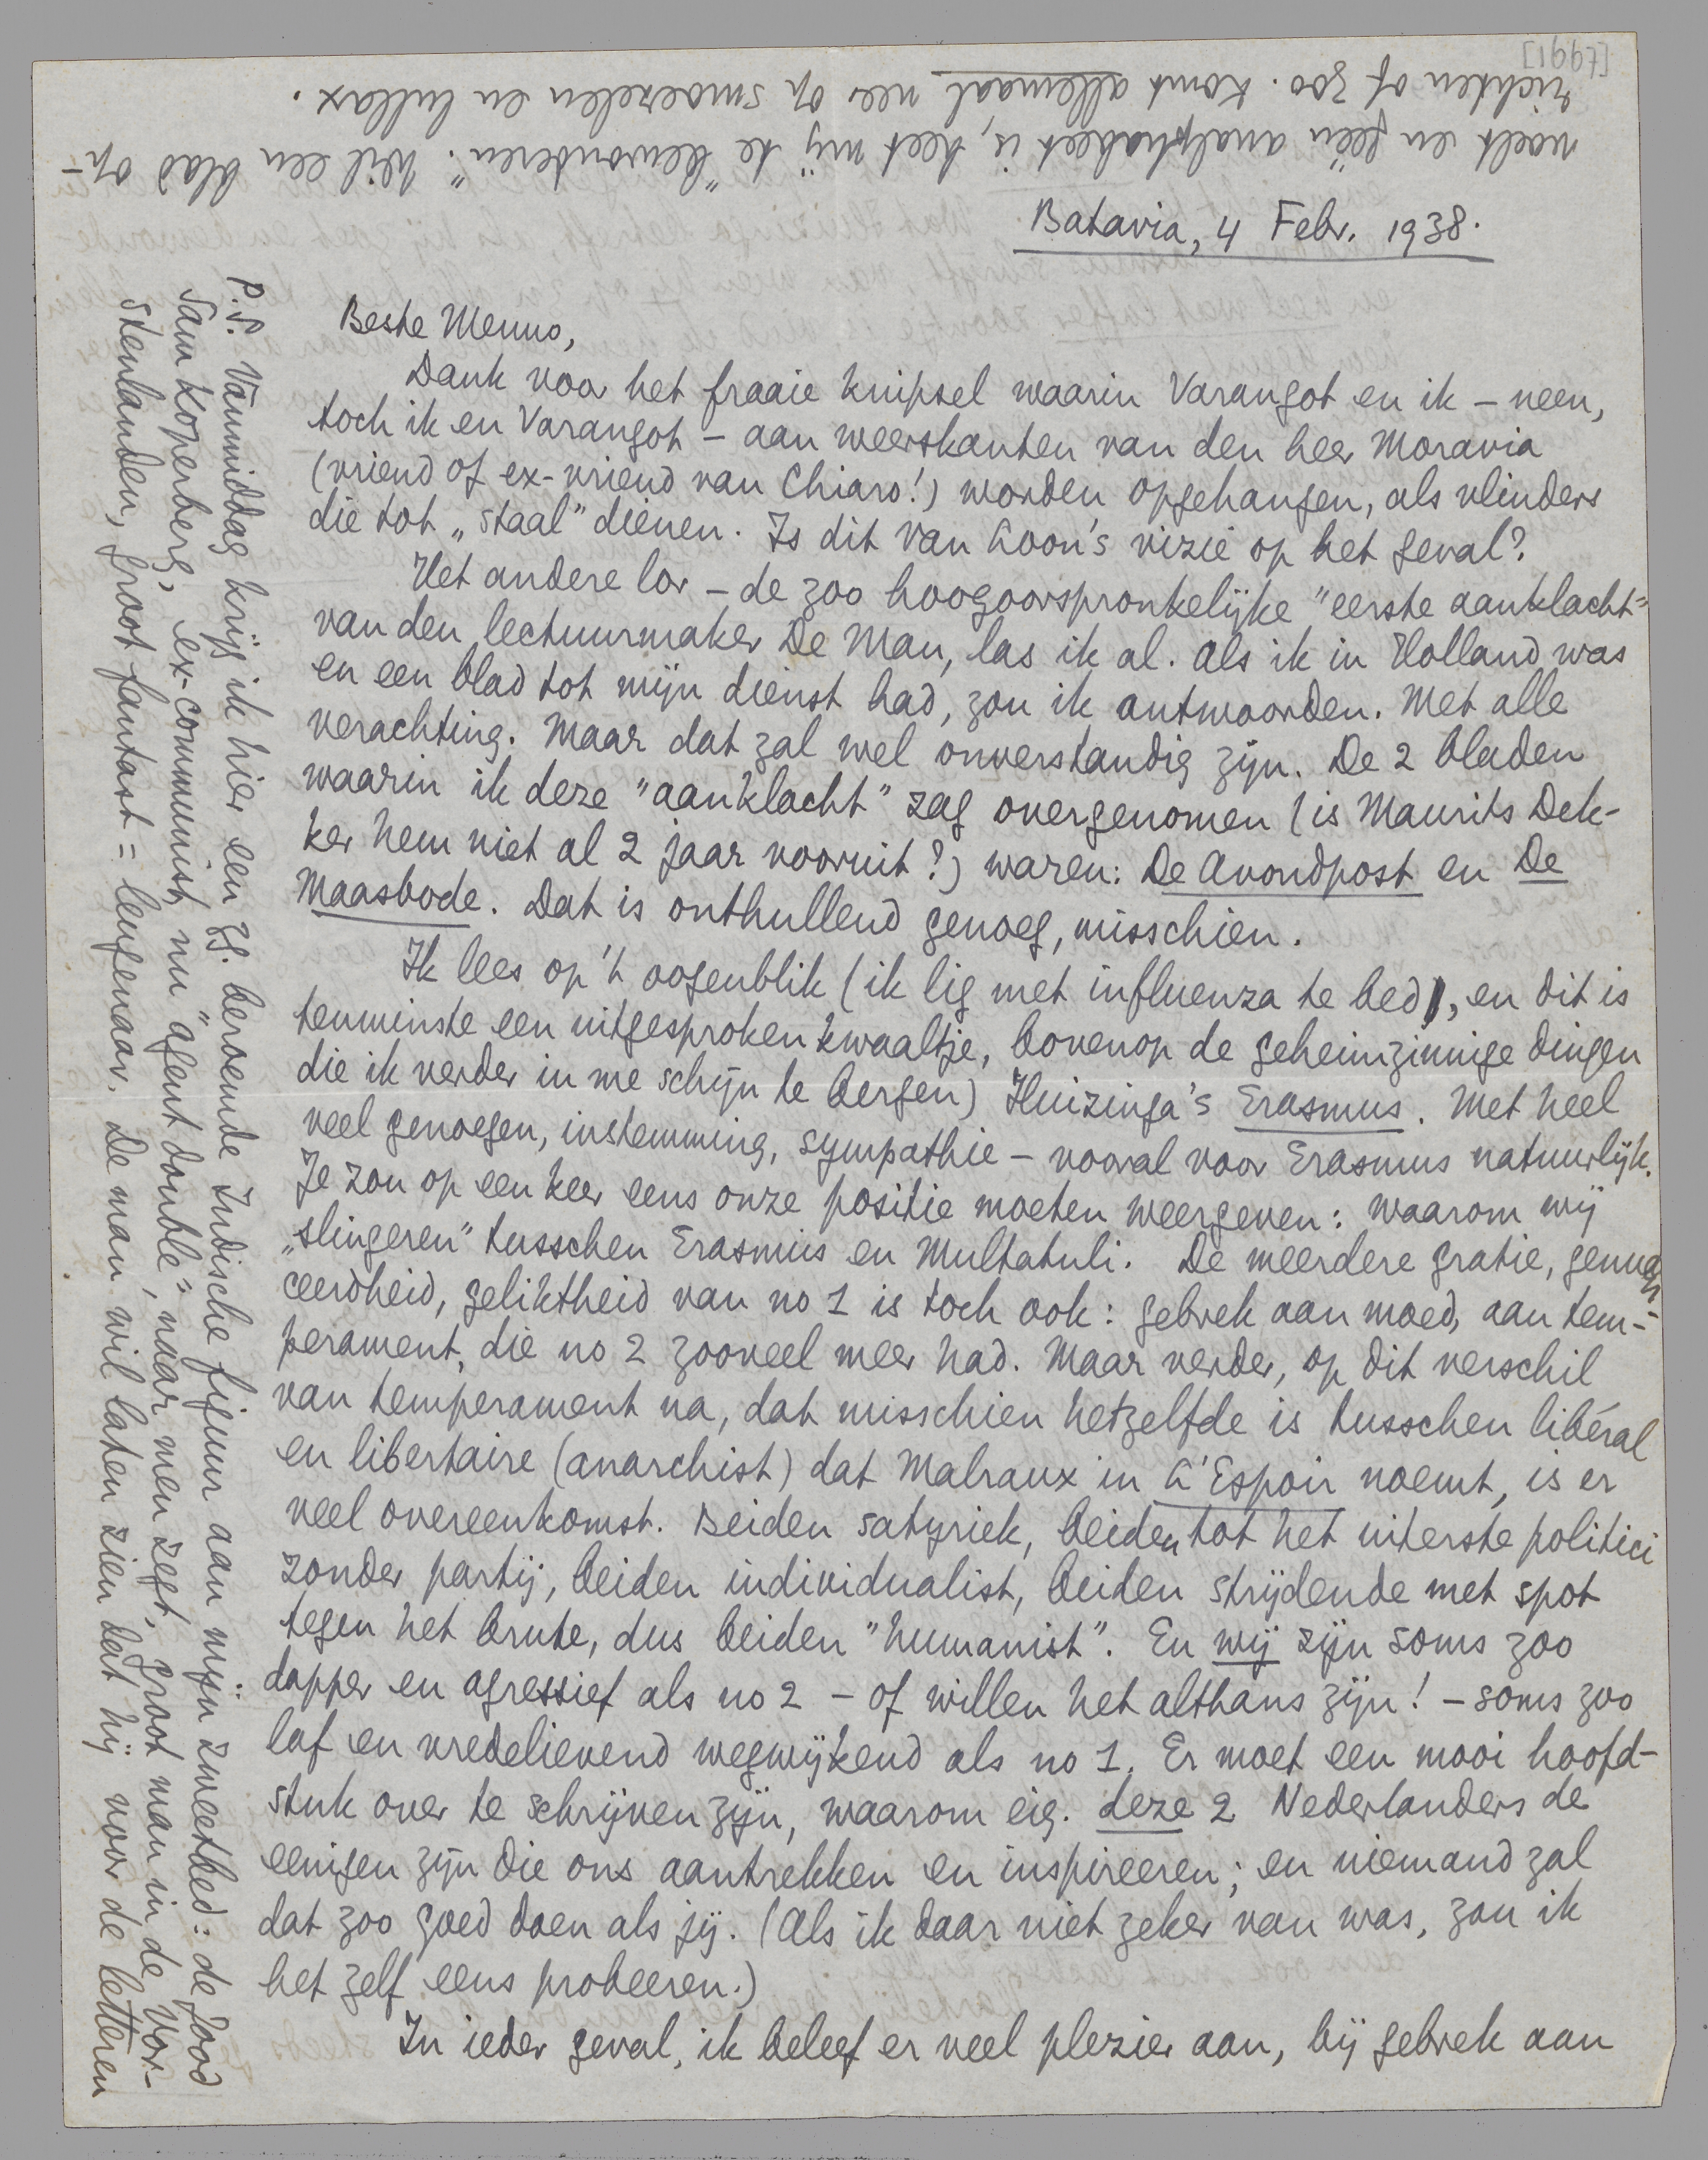 [1997]
Batavia, 4 Febr. 1938.
Beste Menno,
Dank voor het fraaie knipsel waarin Varangot en ik – neen,
toch ik en Varangot – aan weerskanten van den heer Moravia
(vriend of ex-vriend van Chiaro!) worden opgehangen, als vlinders
die tot „staal” dienen. Is dit Van Loon's vizie op het geval?
Het andere lor – de zoo hoogoorspronkelijke "eerste aanklacht"
van den lectuurmaker De Man, las ik al. Als ik in Holland was
en een blad tot mijn dienst had, zou ik antwoorden. Met alle
verachting. Maar dat zal wel onverstandig zijn. De 2 bladen
waarin ik deze "aanklacht" zag overgenomen (is Maurits Dek-
ker hem niet al 2 jaar vooruit?) waren: De Avondpost en De
Maasbode. Dat is onthullend genoeg, misschien.
Ik lees op 't oogenblik (ik lig met influenza te bed, en dit is
tenminste een uitgesproken kwaaltje, bovenop de geheimzinnige dingen
die ik verder in me schijn te bergen) Huizinga's Erasmus. Met heel
veel genoegen, instemming, sympathie – vooral voor Erasmus natuurlijk.
Je zou op een keer eens onze positie moeten weergeven: waarom wij
„slingeren” tusschen Erasmus en Multatuli. De meerdere gratie, genuan-
ceerdheid, geliktheid van no 1 is toch ook: gebrek aan moed, aan tem-
perament, die no 2 zooveel meer had. Maar verder, op dit verschil
van temperament na, dat misschien hetzelfde is tusschen libéral
en libertaire (anarchist) dat Malraux in L'Espoir noemt, is er
veel overeenkomst. Beiden satyriek, beiden tot het uiterste politici
zonder partij, beiden individualist, beiden strijdende met spot
tegen het brute, dus beiden "humanist". En wij zijn soms zoo
dapper en agressief als no 2 – of willen het althans zijn! – soms zoo
laf en vredelievend wegwijkend als no 1. Er moet een mooi hoofd-
stuk over te schrijven zijn, waarom eig. deze 2 Nederlanders de
eenigen zijn die ons aantrekken en inspireeren; en niemand zal
dat zoo goed doen als jij. (Als ik daar niet zeker van was, zou ik
het zelf eens probeeren.)
In ieder geval, ik beleef er veel plezier aan, bij gebrek aan
P.S. Vanmiddag krijg ik hier een zg. beroemde Indische figuur aan mijn zweetbed: de Jood
Sam Koperberg, ex-communist, nu "agent double", naar men zegt, groot man in de Vor-
stenlanden, groot fantast = leugenaar. De man wil laten zien dat hij voor de letteren
voelt en géén analphabeet is, heet mij te "bewonderen". Wil een blad op-
richten of zoo. Komt allemaal neer op smoezelen en lullax.